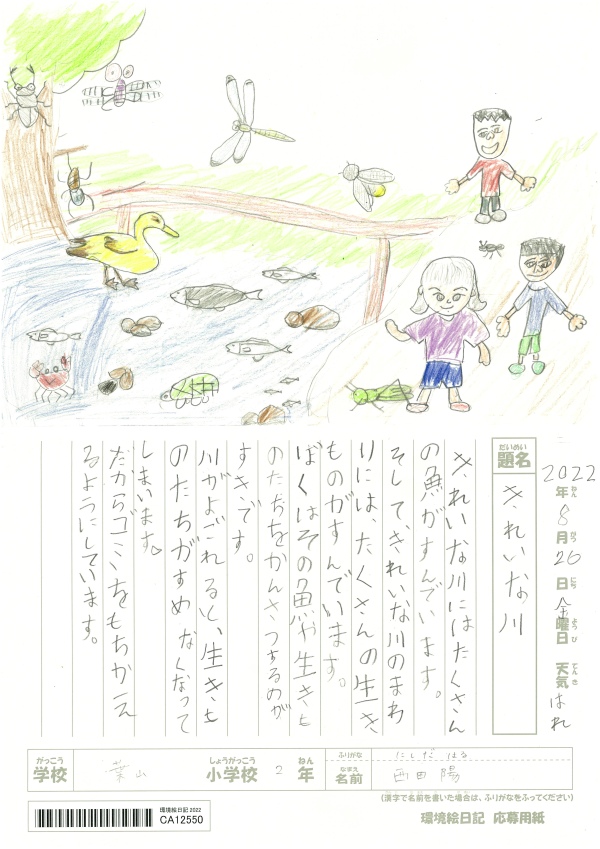 2022年8月26日金曜日 天気 はれ
ねん がつ にち ようび てんき
だいめい
題名
きれいな川
きれいな川にはたくさん
の魚がすんでいます。
そして、きれいな川のまわ
りには、たくさんの生き
ものがすんでいます。
ぼくはその魚や生きも
のたちをかんさつするのが
すきです。
川がよごれると、生きも
のたちがすめなくなって
しまいます。
だからゴミをもちかえ
るようにしています。
がっこう
学校
葉山
しょうがっこう
小学校
2
ねん
年
ふりがな
にしだ はる
なまえ
名前
西田 陽
(漢字で名前を書いた場合は、ふりがなをふってください)
環境絵日記 2022
CA12550
環境絵日記 応募用紙